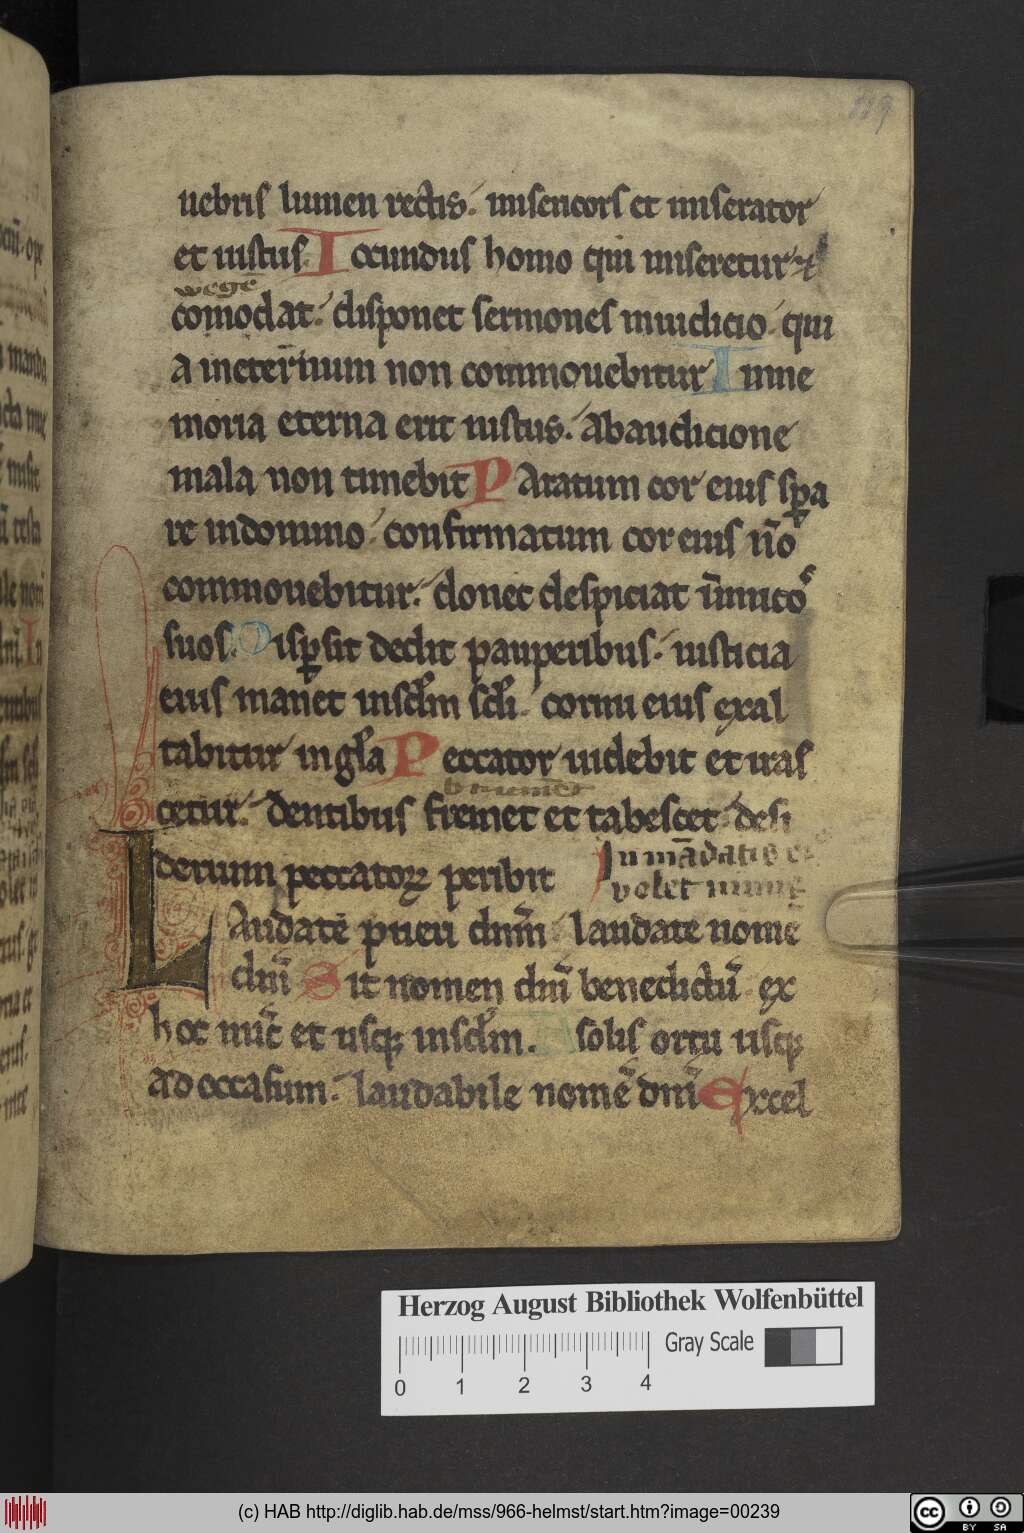 119
uebris lumen rectis. misericors et miserator
et iustus. Iocundus homo qui miseretur ⁊
wege
cōmodat. disponet sermones iniudicio. qui
a ineternum non commouebitur In me
moria eterna erit iustus. Abauditione
mala non timebit PAratum cor eius sꝑa
re indomino. confirmatum cor eius nō
commouebitur. donec despiciat inimicos
suos. Disꝑsit dedit pauperibus. iusticia
eius manet insclm scli. cornu eius exal
tabitur in gla Peccator uidebit et iras
cetur. dentibus fremet et tabescet. desi
derium peccatoꝝ peribit
In mādatis ei
volet nimis
LAudate pueri dnm laudate nomē
dnī Sit nomen dnī benedictū. ex
hoc nūc et usqꝫ insclm. A solis ortu usqꝫ
ad occasum. laudabile nomē dnī Excel
Herzog August Bibliothek Wolfenbüttel
Gray Scale
0 1 2 3 4
(c) HAB http://diglib.hab.de/mss/966-helmst/start.htm?image=00239
cc BY SA